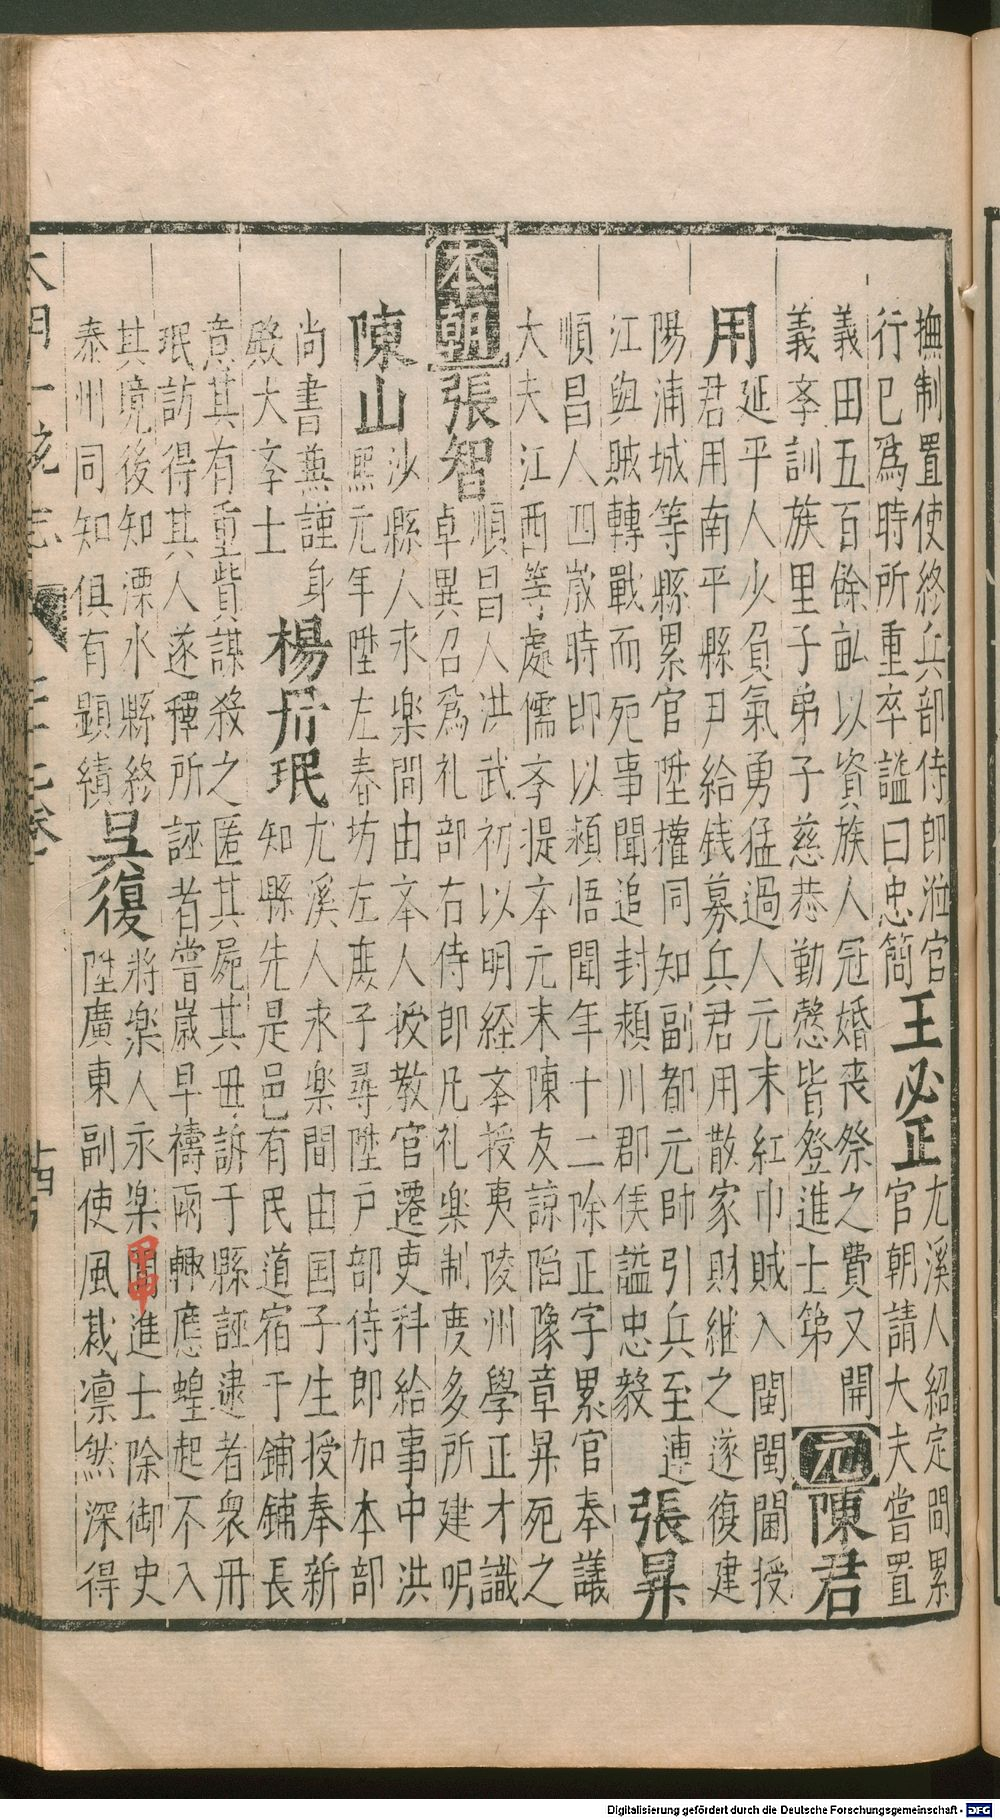 撫制置使終兵部侍郎涖官
行已爲時所重卒謚曰忠簡
王必正
尤溪人紹定間累
官朝請大夫嘗置
義田五百餘畝以資族人冠婚丧祭之費又開
義孝訓族里子弟子慈恭勤慤皆登進士第
元
陳君
用
延平人少負氣勇猛過人元末紅巾賊入閩閩閫授
君用南平縣尹給銭募兵君用散家財継之遂復建
陽浦城等縣累官陞權同知副都元帥引兵至連
江與賊轉戰而死事聞追封潁川郡侯謚忠毅
張昇
順昌人四嵗時即以穎悟聞年十二除正字累官奉議
大夫江西等處儒孝提㪯元末陳友諒陷豫章昇死之
本朝
張智
順昌人洪武初以明経㪯授夷陵州學正才識
卓異召爲礼部右侍郎凡礼楽制度多所建明
陳山
沙縣人永楽間由㪯人授教官遷吏科給事中洪
熈元年陞左春坊左庶子尋陞戸部侍郎加本部
尚書兼謹身
殿大孝士
楊冊珉
尤溪人永楽間由国子生授奉新
知縣先是邑有民道宿于鋪鋪長
意其有重貲謀殺之匿其屍其毋訴于縣誣逮者衆冊
珉訪得其人遂釋所誣者嘗嵗早禱雨輙應蝗起不入
其境後知溧水縣終
泰州同知俱有顕績
吳復
將楽人永楽甲申進士除御史
陞廣東副使風裁凛然深得
大明一統志